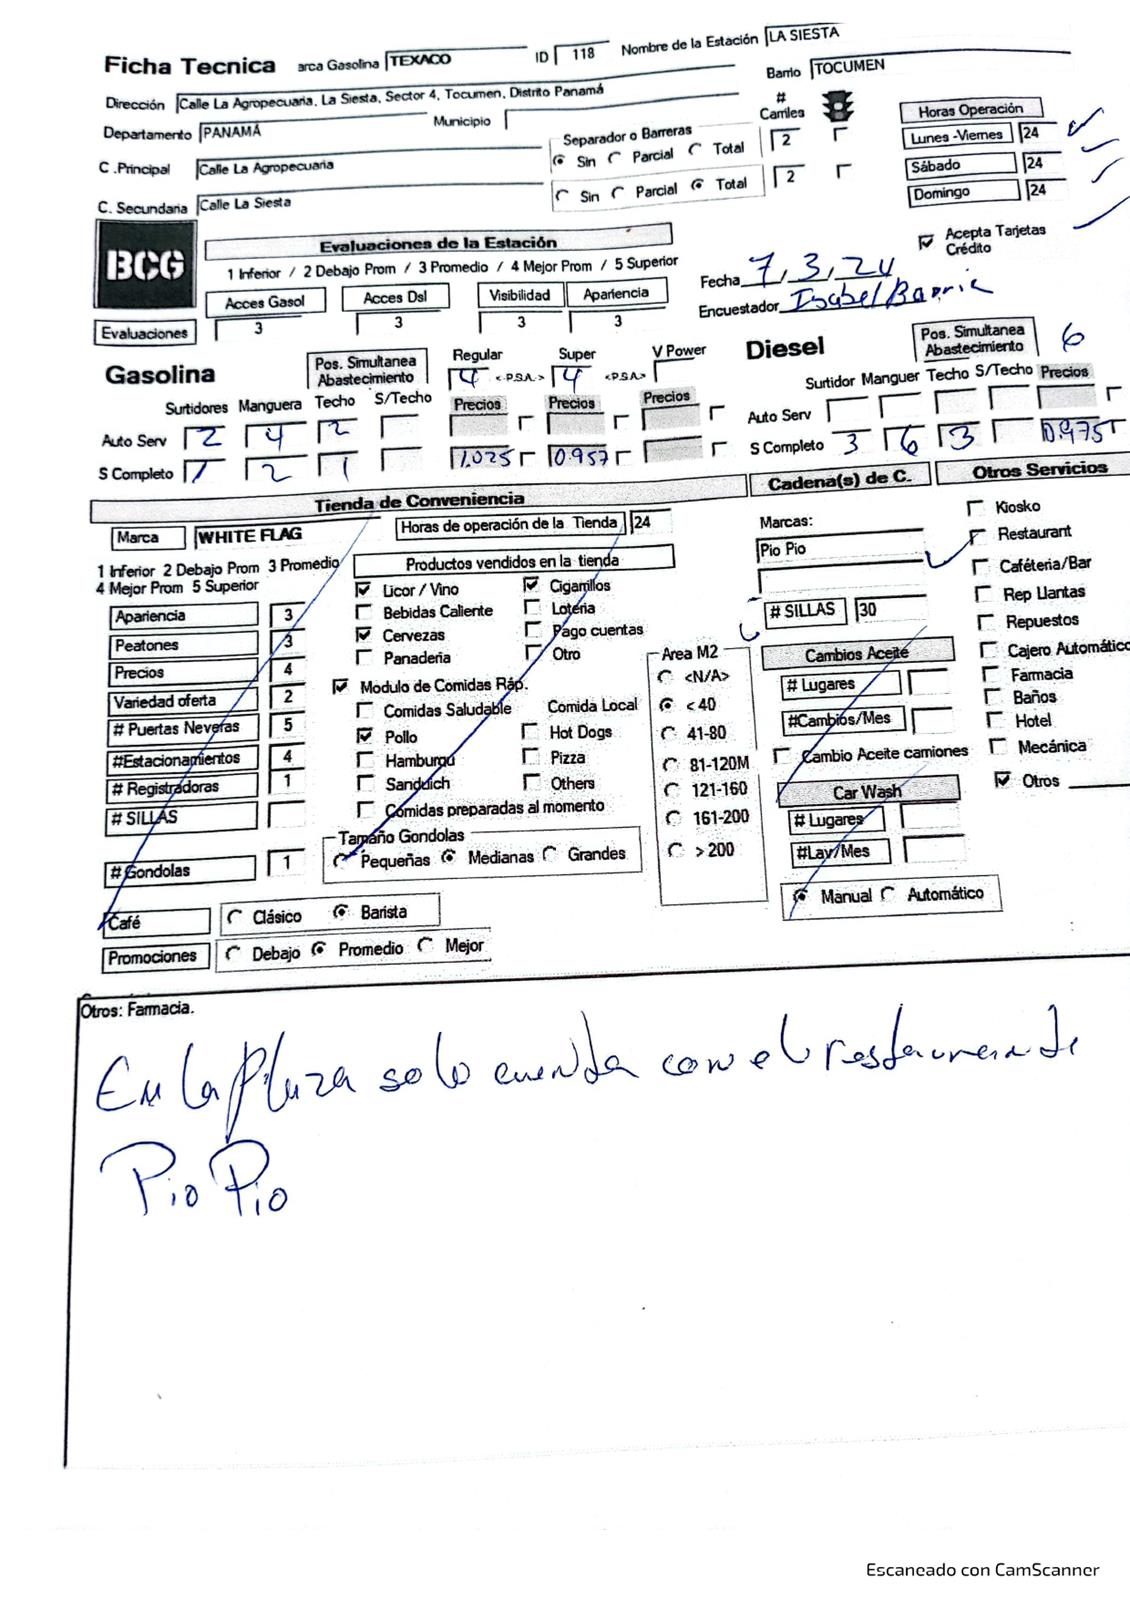 Ficha Tecnica arca Gasolina TEXACO ID 118 Nombre de la Estación LA SIESTA
Dirección Calle La Agropecuaria, La Siesta, Sector 4, Tocumen, Distrito Panamá Barrio TOCUMEN
Departamento PANAMÁ Municipio
# Carriles
Horas Operación
C .Principal Calle La Agropecuaria
Separador o Barreras
Sin Parcial Total 2
Lunes -Viernes 24
C. Secundaria Calle La Siesta
Sin Parcial Total 2
Sábado 24
Domingo 24
BCG
Evaluaciones de la Estación
1 Inferior / 2 Debajo Prom / 3 Promedio / 4 Mejor Prom / 5 Superior
Acepta Tarjetas Crédito
Acces Gasol Acces Dsl Visibilidad Apariencia
Evaluaciones 3 3 3 3
Fecha 7, 3, 24
Encuestador Isabel Barria
Gasolina
Pos. Simultanea Abastecimiento
Regular Super V Power
4 <-P.S.A.-> 4 <-P.S.A.->
Surtidores Manguera Techo S/Techo Precios Precios Precios
Auto Serv 2 4 2
S Completo 1 2 1 1.025 0.957
Diesel
Pos. Simultanea Abastecimiento 6
Surtidor Manguer Techo S/Techo Precios
Auto Serv
S Completo 3 6 3 0.975
Tienda de Conveniencia
Marca WHITE FLAG
Horas de operación de la Tienda 24
1 Inferior 2 Debajo Prom 3 Promedio
4 Mejor Prom 5 Superior
Apariencia 3
Peatones 3
Precios 4
Variedad oferta 2
# Puertas Neveras 5
#Estacionamientos 4
# Registradoras 1
# SILLAS
# Gondolas 1
Productos vendidos en la tienda
Licor / Vino Cigarrillos
Bebidas Caliente Loteria
Cervezas Pago cuentas
Panaderia Otro
Modulo de Comidas Ráp.
Comidas Saludable Comida Local
Pollo Hot Dogs
Hamburgu Pizza
Sandwich Others
Comidas preparadas al momento
Tamaño Gondolas
Pequeñas Medianas Grandes
Café Clásico Barista
Promociones Debajo Promedio Mejor
Area M2
<N/A>
< 40
41-80
81-120M
121-160
161-200
> 200
Cadena(s) de C.
Marcas:
Pio Pio
# SILLAS 30
Cambios Aceite
# Lugares
#Cambios/Mes
Cambio Aceite camiones
Car Wash
# Lugares
#Lav/Mes
Manual Automático
Otros Servicios
Kiosko
Restaurant
Caféteria/Bar
Rep Llantas
Repuestos
Cajero Automático
Farmacia
Baños
Hotel
Mecánica
Otros
Otros: Farmacia.
En la Plaza solo cuenta con el restaurante
Pio Pio
Escaneado con CamScanner